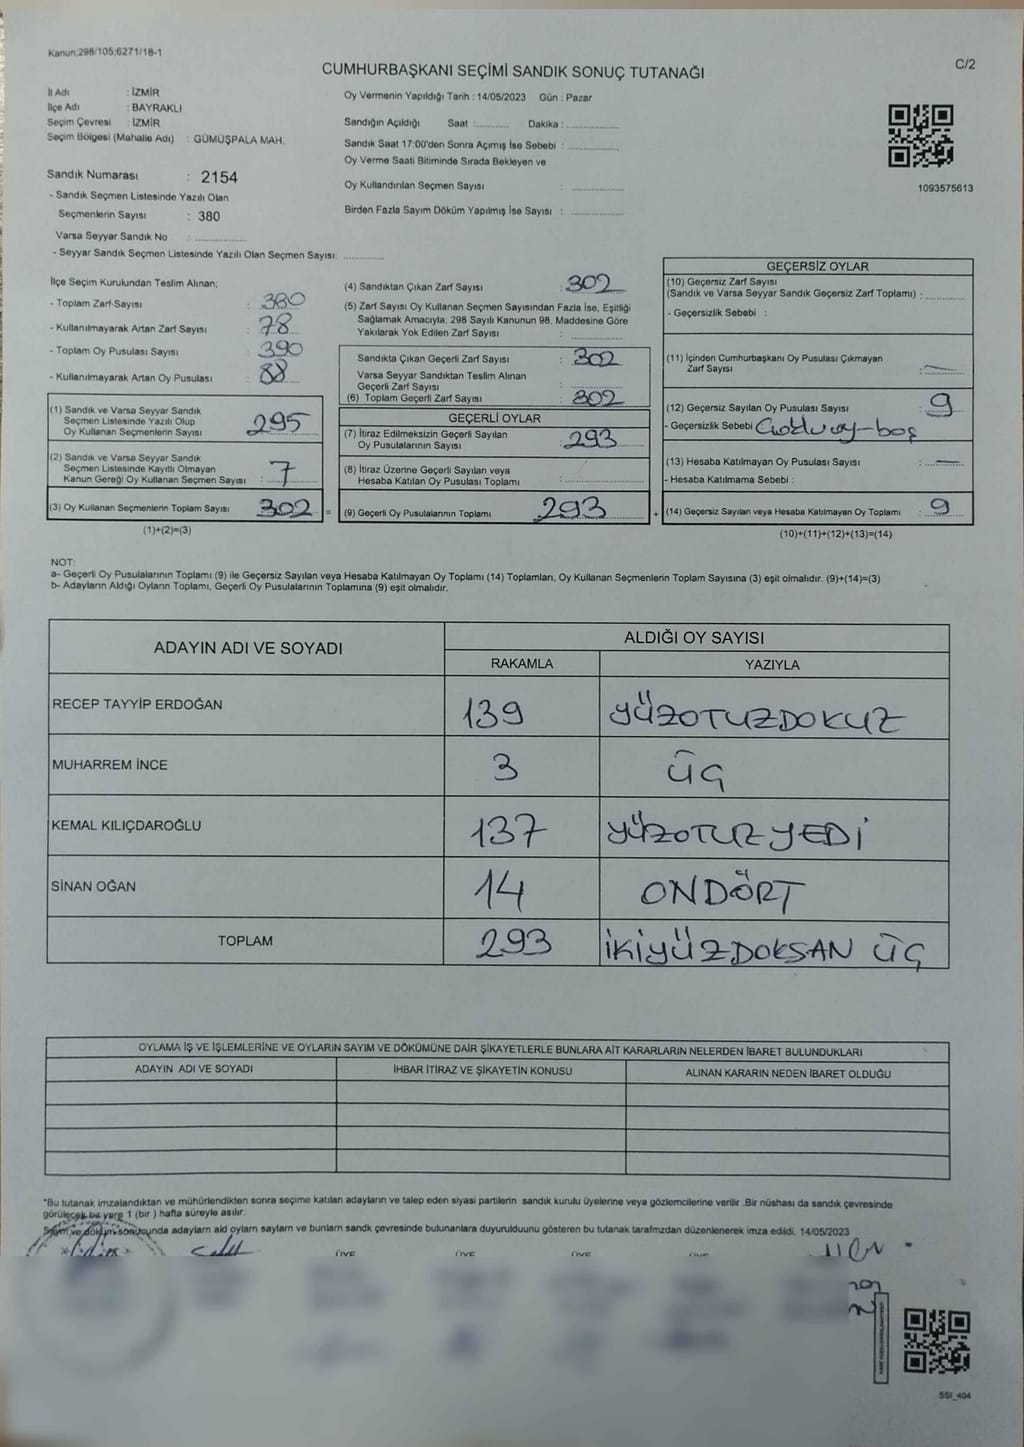 Kanun;298/105;6271/18-1
CUMHURBAŞKANI SEÇİMİ SANDIK SONUÇ TUTANAĞI
C/2
İl Adı : İZMİR
İlçe Adı : BAYRAKLI
Seçim Çevresi : İZMİR
Seçim Bölgesi (Mahalle Adı) : GÜMÜŞPALA MAH.
Sandık Numarası : 2154
- Sandık Seçmen Listesinde Yazılı Olan
Seçmenlerin Sayısı : 380
Varsa Seyyar Sandık No ...............
- Seyyar Sandık Seçmen Listesinde Yazılı Olan Seçmen Sayısı: ............
Oy Vermenin Yapıldığı Tarih : 14/05/2023 Gün : Pazar
Sandığın Açıldığı Saat :.......... Dakika : ...............
Sandık Saat 17:00'den Sonra Açımış İse Sebebi : ...............
Oy Verme Saati Bitiminde Sırada Bekleyen ve
Oy Kullandırılan Seçmen Sayısı : ...............
Birden Fazla Sayım Döküm Yapılmış İse Sayısı : ...............
1093575613
İlçe Seçim Kurulundan Teslim Alınan;
- Toplam Zarf Sayısı : 380
- Kullanılmayarak Artan Zarf Sayısı : 78
- Toplam Oy Pusulası Sayısı : 390
- Kullanılmayarak Artan Oy Pusulası : 88
(1) Sandık ve Varsa Seyyar Sandık
Seçmen Listesinde Yazılı Olup
Oy Kullanan Seçmenlerin Sayısı : 295
(2) Sandık ve Varsa Seyyar Sandık
Seçmen Listesinde Kayıtlı Olmayan
Kanun Gereği Oy Kullanan Seçmen Sayısı : 7
(3) Oy Kullanan Seçmenlerin Toplam Sayısı : 302 =
(1)+(2)=(3)
(4) Sandıktan Çıkan Zarf Sayısı : 302
(5) Zarf Sayısı Oy Kullanan Seçmen Sayısından Fazla İse, Eşitliği
Sağlamak Amacıyla, 298 Sayılı Kanunun 98. Maddesine Göre
Yakılarak Yok Edilen Zarf Sayısı : ...............
Sandıkta Çıkan Geçerli Zarf Sayısı : 302
Varsa Seyyar Sandıktan Teslim Alınan
Geçerli Zarf Sayısı : ...............
(6) Toplam Geçerli Zarf Sayısı : 302
GEÇERLİ OYLAR
(7) İtiraz Edilmeksizin Geçerli Sayılan
Oy Pusulalarının Sayısı : 293
(8) İtiraz Üzerine Geçerli Sayılan veya
Hesaba Katılan Oy Pusulası Toplamı : ...............
(9) Geçerli Oy Pusulalarının Toplamı : 293 +
GEÇERSİZ OYLAR
(10) Geçersiz Zarf Sayısı
(Sandık ve Varsa Seyyar Sandık Geçersiz Zarf Toplamı) : ............
- Geçersizlik Sebebi :
(11) İçinden Cumhurbaşkanı Oy Pusulası Çıkmayan
Zarf Sayısı : —
(12) Geçersiz Sayılan Oy Pusulası Sayısı : 9
- Geçersizlik Sebebi oy-boş
(13) Hesaba Katılmayan Oy Pusulası Sayısı : —
- Hesaba Katılmama Sebebi :
(14) Geçersiz Sayılan veya Hesaba Katılmayan Oy Toplamı : 9
(10)+(11)+(12)+(13)=(14)
NOT:
a- Geçerli Oy Pusulalarının Toplamı (9) ile Geçersiz Sayılan veya Hesaba Katılmayan Oy Toplamı (14) Toplamları, Oy Kullanan Seçmenlerin Toplam Sayısına (3) eşit olmalıdır. (9)+(14)=(3)
b- Adayların Aldığı Oyların Toplamı, Geçerli Oy Pusulalarının Toplamına (9) eşit olmalıdır.
ADAYIN ADI VE SOYADI
ALDIĞI OY SAYISI
RAKAMLA YAZIYLA
RECEP TAYYİP ERDOĞAN 139 YÜZOTUZDOKUZ
MUHARREM İNCE 3 ÜÇ
KEMAL KILIÇDAROĞLU 137 YÜZOTUZYEDİ
SİNAN OĞAN 14 ONDÖRT
TOPLAM 293 İKİYÜZDOKSAN ÜÇ
OYLAMA İŞ VE İŞLEMLERİNE VE OYLARIN SAYIM VE DÖKÜMÜNE DAİR ŞİKAYETLERLE BUNLARA AİT KARARLARIN NELERDEN İBARET BULUNDUKLARI
ADAYIN ADI VE SOYADI İHBAR İTİRAZ VE ŞİKAYETİN KONUSU ALINAN KARARIN NEDEN İBARET OLDUĞU
*Bu tutanak imzalandıktan ve mühürlendikten sonra seçime katılan adayların ve talep eden siyasi partilerin sandık kurulu üyelerine veya gözlemcilerine verilir .Bir nüshası da sandık çevresinde
görülecek bir yere 1 (bir ) hafta süreyle asılır.
Sayım ve döküm sonucunda adayların ald oyların sayları ve bunların sandk çevresinde bulunanlara duyurulduunu gösteren bu tutanak tarafmzdan düzenlenerek imza edildi. 14/05/2023
ÜYE ÜYE ÜYE
SSI_404